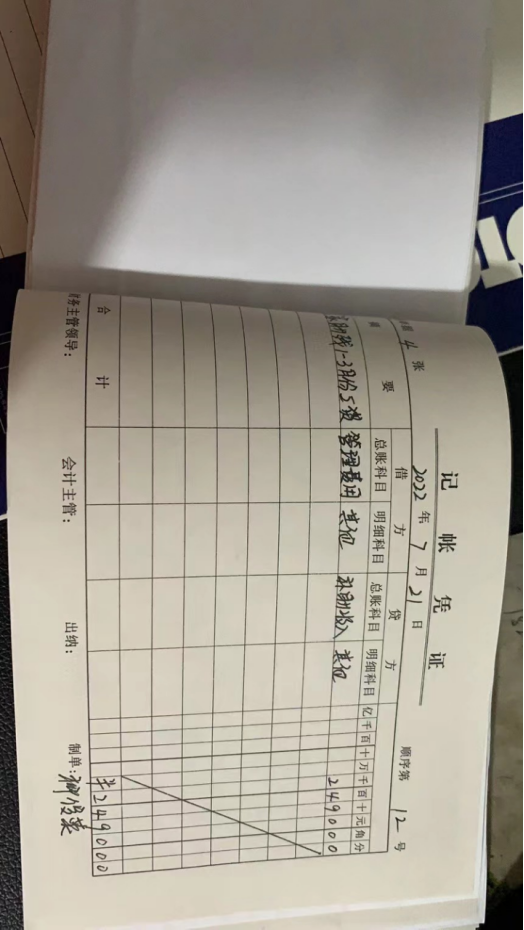 记帐凭证
2022年7月21日
顺序第12号
4张
摘要 借方 贷方
总账科目 明细科目 总账科目 明细科目 亿千百十万千百十元角分
1-3月份 管理费用 其他 补助收入 其他 249000
合计 ¥249000
财务主管领导： 会计主管： 出纳： 制单：